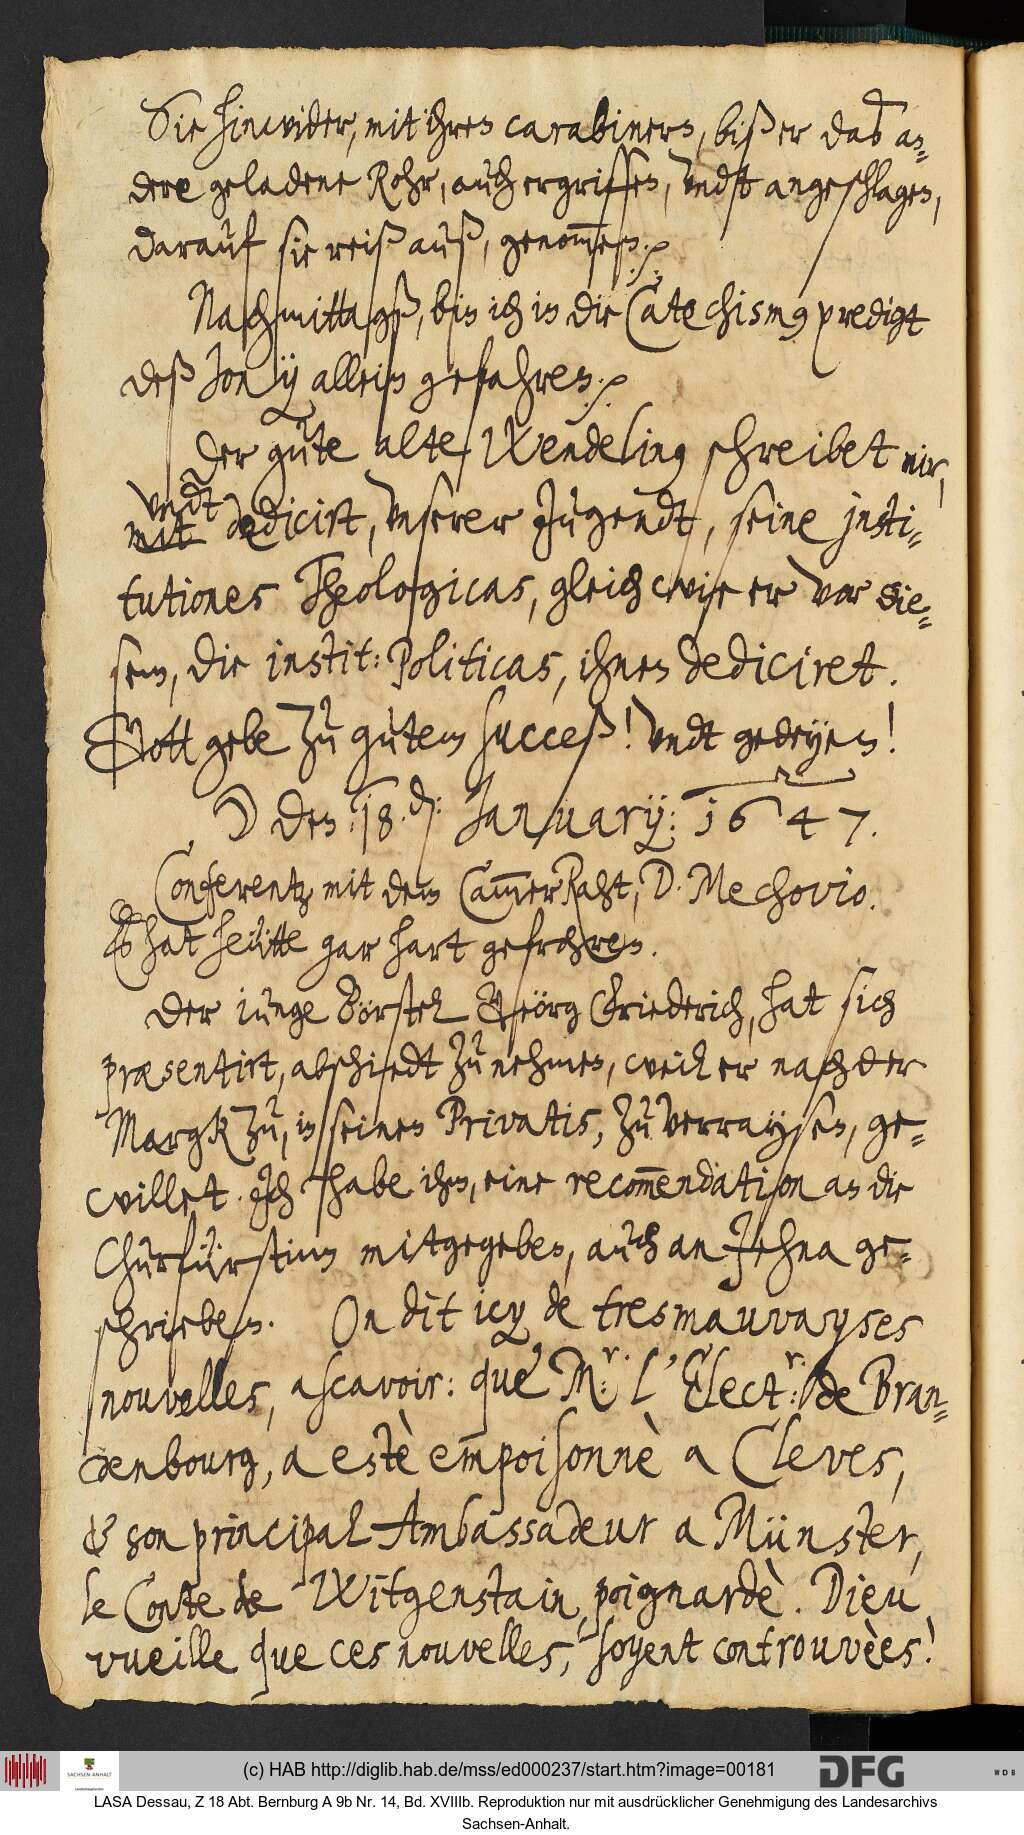 Sie hinwider, mit ihren carabinern, biß er das an-
dere geladene Rohr, auch ergriffen, vndt angeschlagen,
darauf sie reiß auß, genom̅en. /.
Nachmittagß, bin ich in die Catechismus predigt
deß Jonij allein gefahren. /.
Der gute alte Wendelinus schreibet mir,
vndt
mit dedicirt, vnserer Jugendt, seine insti-
tutiones Theologicas, gleich wie er vor die-
sem, die instit: Politicas, ihnen dediciret.
Gott gebe zu gutem succeß! vndt gedeyen!
☽ den 18. d: January: 1647.
Conferentz mit dem Cam̅erRaht, D. Mechovio.
Es hat heütte gar hart gefrohren.
Der iunge Börstel Georg Friederich, hat sich
præsentirt, abschiedt zu nehmen, weil er nach der
Margk zu, in seinen Privatis, zu verraysen, ge-
willet. Ich habe ihm, eine recom̅endation an die
Churfürstinn mitgegeben, auch an Jehna ge-
schrieben. On dit icy de tres mauvayses
nouvelles, ascavoir: que Mr: l'Electr: de Bran-
denbourg, a estè empoisonnè a Cleves,
& son principal Ambassadeur a Münster,
le Conte de Witgenstain, poignardè. Dieu
vueille que ces nouvelles, soyent controuvèes!
(c) HAB http://diglib.hab.de/mss/ed000237/start.htm?image=00181
SACHSEN-ANHALT
DFG
WDB
LASA Dessau, Z 18 Abt. Bernburg A 9b Nr. 14, Bd. XVIIIb. Reproduktion nur mit ausdrücklicher Genehmigung des Landesarchivs
Sachsen-Anhalt.